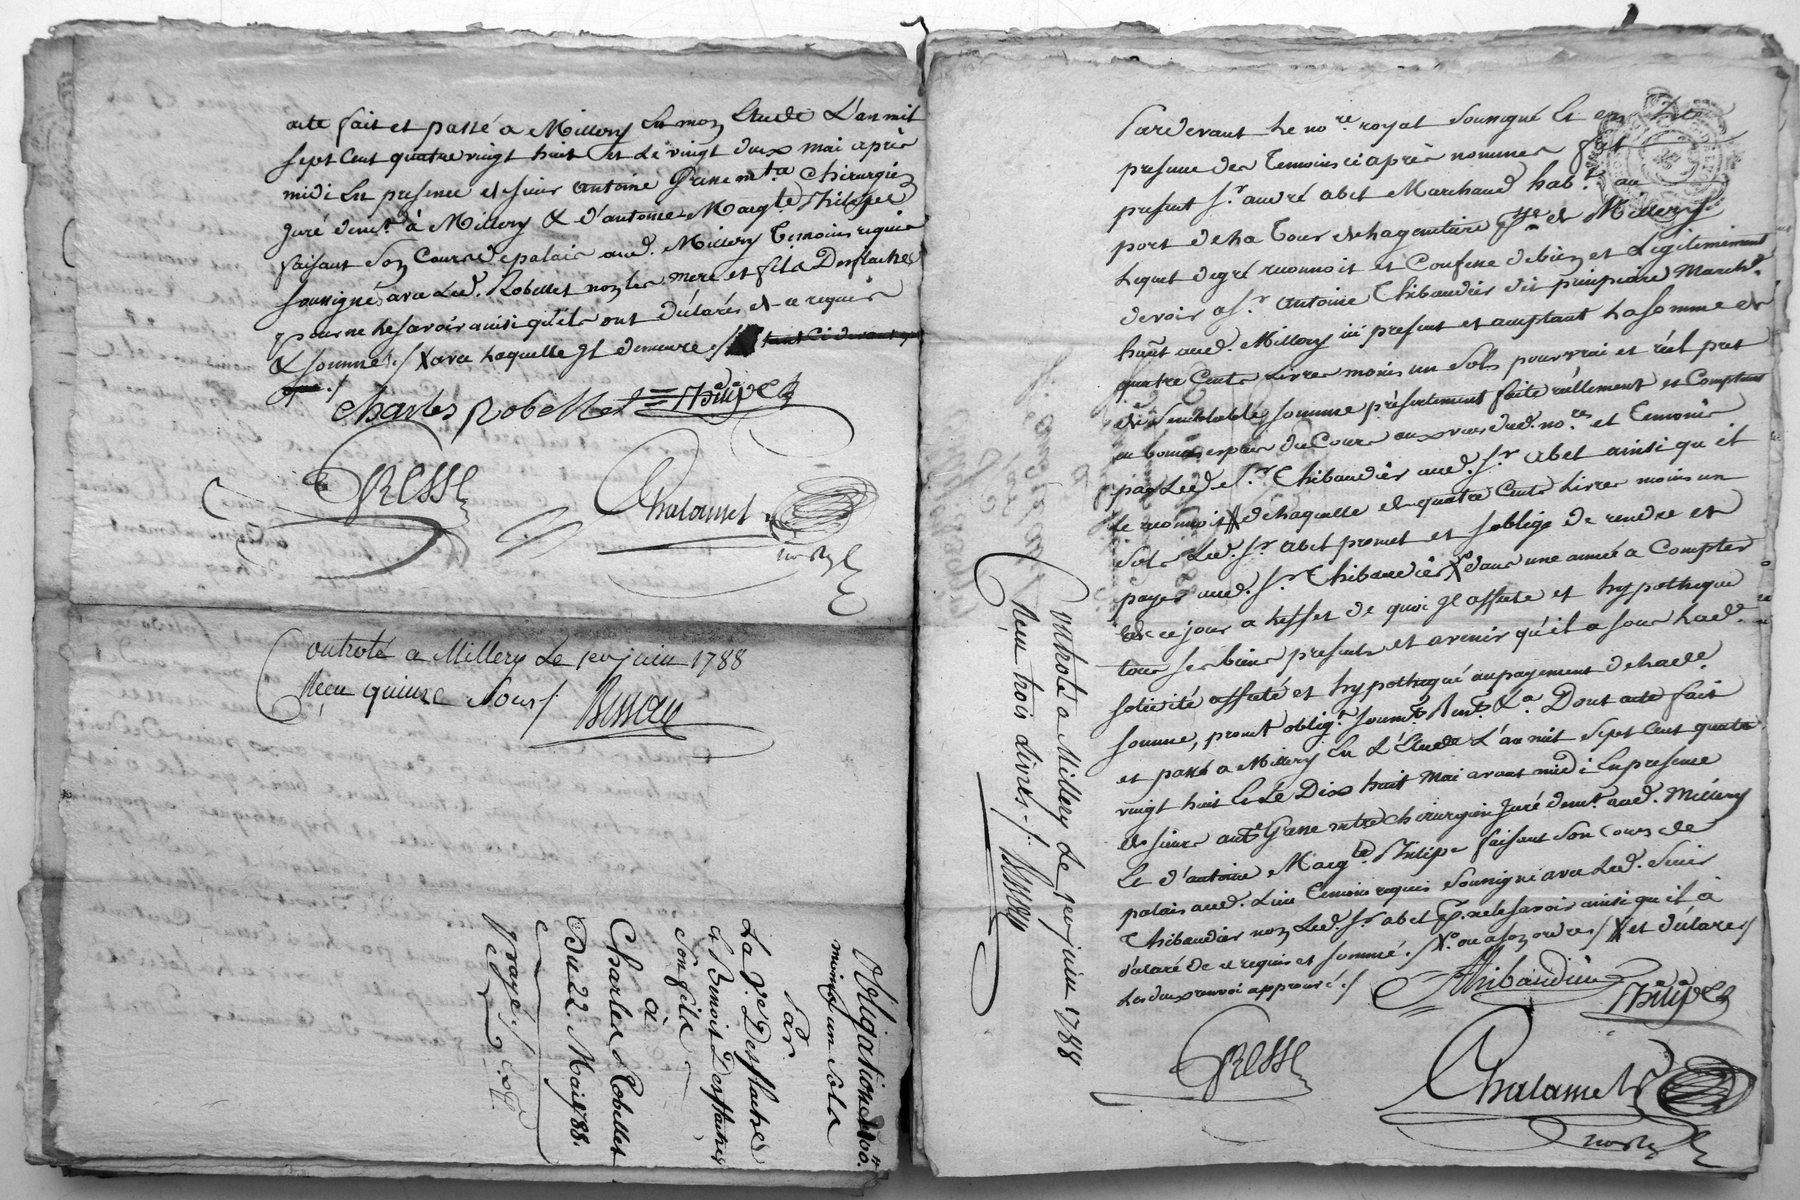 acte fait et passé a Millery En mon Etude L'an mil
sept Cent quatre vingt huit et Le vingt deux mai après
midi En presence de sieur antoine Gresse mtre Chirurgien
Juré demt. à Millery & d'antoine Margte. Philipe
faisant Son Cours de palais aud. Millery temoins requis
soussigné avec Led. Robellet non les mere et fils Desflaches
pour ne le savoir ainsi qu'ils ont déclarés de ce requis
& sommés ./. X avec laquelle Il demeure ./.
Charles Robellet Philipe
Gresse
Chalamel
Controlé a Millery Le 1er juin 1788
Reçu quinze Sous /. Besson
Obligation de 400.
moins un Sols
Par
La Ve. Desflaches
& Benoit Desflaches
Son fils
à
Charles Robellet
Du 22 Mai 1788.
Pardevant Le nore. royal Soussigné Et en
presence des Temoins ci après nommés fut
present sr. andré abel Marchand habt. au
port de La Tour de Millery
Lequel de gré reconnoit et Confesse debien et Légitimement
devoir a sr. antoine Thibaudier dit Marchd.
hant. aud. Millery ici present et acceptant La somme de
quatre Cents Livres moins un Sols pour vrai et réel prêt
de semblable somme présentement faite réellement et Comptant
en bonnes especes du Cours aux vues dud. nore. et temoins
par Led. Sr. Thibaudier aud. sr. abel ainsi qu'il
le reconnoit de Laquelle de quatre Cents Livres moins un
Sols Led. sr. abel promet et soblige de rendre et
payer aud. sr. Thibaudier X dans une année a Compter
de ce jour a L'effet de quoi Il affecte et hypotheque
tous ses biens presents et avenir qu'il a sous Lad.
solidité affecté et hypothequé au payement de Lad.
somme, promt. oblig. soumt. Rent. &a. Dont acte fait
et passé a Millery En L'Etude L'an mil sept Cent quatre
vingt huit & Le Dix huit Mai avant midi En presence
de sieur ante. Gresse mtre Chirurgien Juré demt. aud. Millery
Et d'antoine Margte. Philipe faisant Son Cours de
palais aud. Lieu temoins requis Soussigné avec Led. Sieur
Thibaudier non Led. sr. abel pr. ne le savoir ainsi qu'il a
déclaré de ce requis et sommé ./. X ou a son ordre / X et déclare /
Les deux renvoi approuvé ./.
Thibaudier
Philipe
Gresse
Chalamel
Controlé a Millery Le 1er juin 1788
Reçu trois Livres ./. Besson